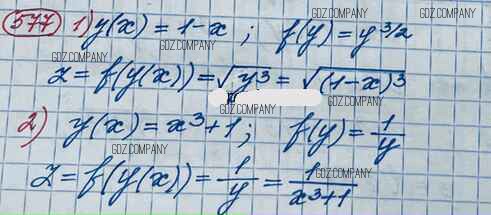 577 1) y(x) = 1-x ; f(y) = y^3/2
z = f(y(x)) = √y³ = √(1-x)³
2) y(x) = x³+1 ; f(y) = 1/y
z = f(y(x)) = 1/y = 1/(x³+1)
GDZ.COMPANY
GDZ.COMPANY
GDZ.COMPANY
GDZ.COMPANY
GDZ.COMPANY
GDZ.COMPANY
GDZ.COMPANY
GDZ.COMPANY
GDZ.COMPANY